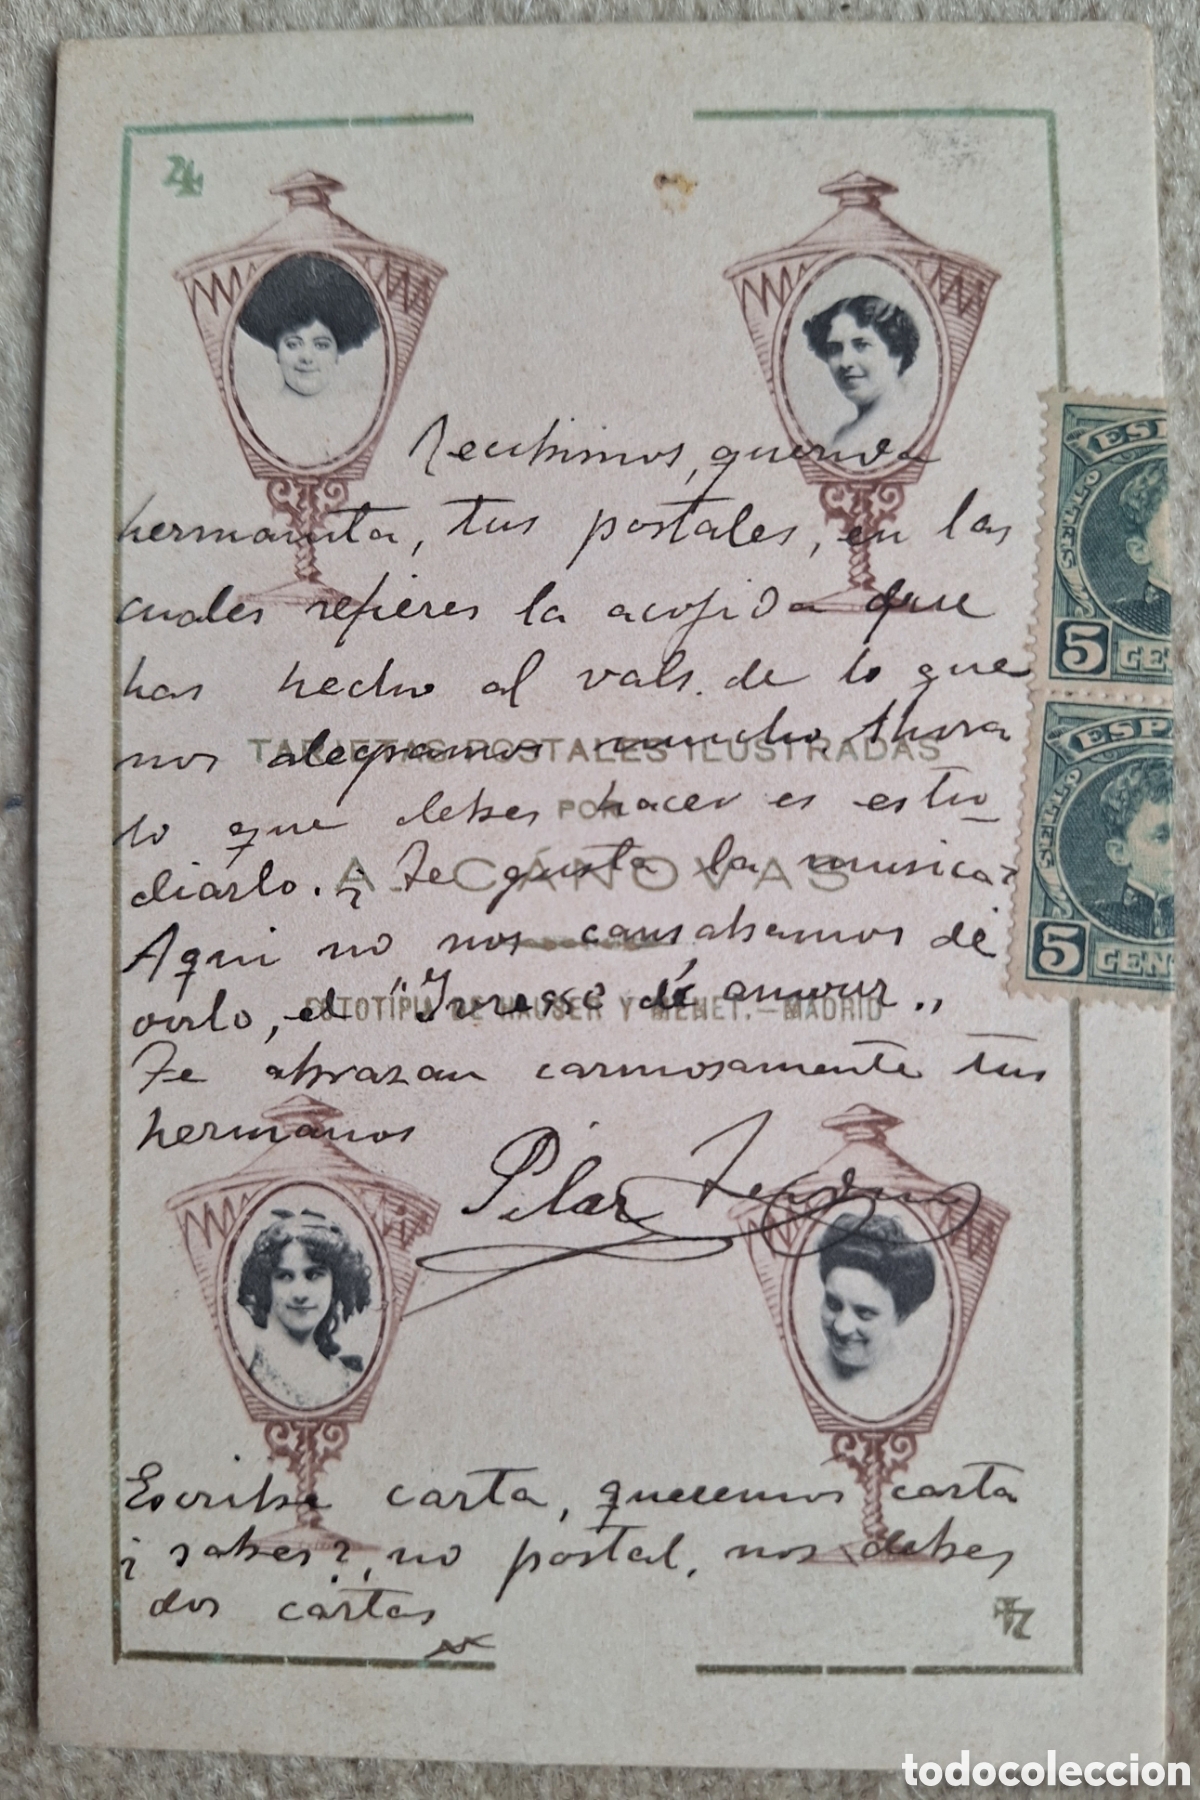 24
Recibimos, querida
hermanita, tus postales, en las
cuales refieres la acojida que
has hecho al vals. de lo que
nos alegramos mucho Ahora
lo que debes hacer es estu-
diarlo. ¿Te gusta la musica?
Aqui no nos cansabamos de
oirlo, el "Ivresse d'amour"
Te abrazan cariñosamente tus
hermanos
Pilar
Escribe carta, queremos carta
¿sabes?, no postal, nos debes
dos cartas
TARJETAS POSTALES ILUSTRADAS
POR
A. CÁNOVAS
FOTOTIPIA DE HAUSER Y MENET.—MADRID
24
ESP
SELLO
5 CE
ESPA
SELLO
5 CENT
todocoleccion